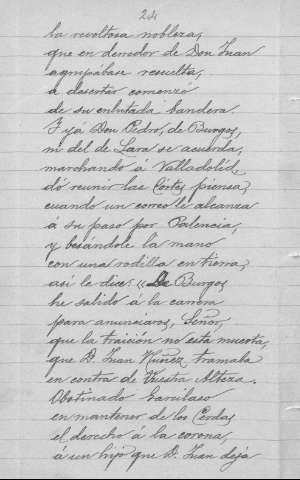 24
la revoltosa nobleza,
que en derredor de Don Juan
agrupábase resuelta,
á desertar comenzó
de su enlutada bandera.
Y yá Don Pedro, de Burgos,
ni del de Lara se acuerda,
marchando á Valladolid,
dó reunir las Cortes piensa,
cuando un correo le alcanza
á su paso por Palencia,
y besándole la mano
con una rodilla en tierra,
así le dice: "De Burgos
he salido á la carrera
para anunciaros, Señor,
que la traición no está muerta,
que D. Juan Nuñez tramaba
en contra de Vuestra Alteza.
Obstinado Garcilaso
en mantener de los Cerdas
el derecho á la corona,
á un hijo que D. Juan deja